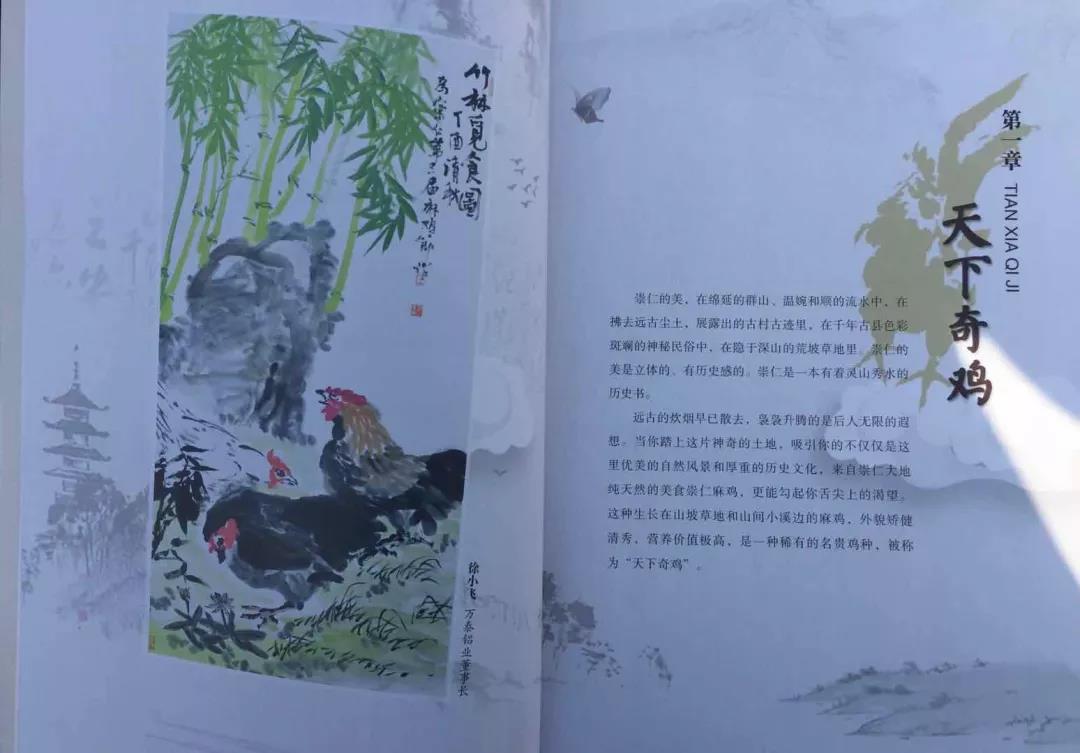 竹林觅食圖
丁酉清秋
徐小飞 万泰铝业董事长
第一章
TIAN XIA QI JI
天下奇鸡
崇仁的美，在绵延的群山、温婉和顺的流水中，在
拂去远古尘土，展露出的古村古迹里，在千年古县色彩
斑斓的神秘民俗中，在隐于深山的荒坡草地里。崇仁的
美是立体的、有历史感的。崇仁是一本有着灵山秀水的
历史书。
远古的炊烟早已散去，袅袅升腾的是后人无限的遐
想。当你踏上这片神奇的土地，吸引你的不仅仅是这
里优美的自然风景和厚重的历史文化，来自崇仁大地
纯天然的美食崇仁麻鸡，更能勾起你舌尖上的渴望。
这种生长在山坡草地和山间小溪边的麻鸡，外貌矫健
清秀，营养价值极高，是一种稀有的名贵鸡种，被称
为“天下奇鸡”。